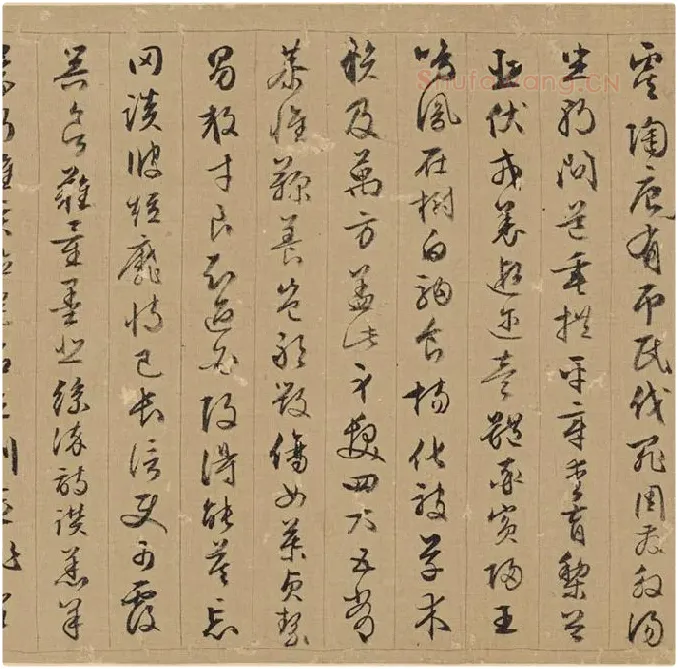 虞陶唐有弔民伐罪周發殷湯
坐朝問道垂拱平章愛育黎首
臣伏戎羌遐邇壹體率賓歸王
鳴鳳在樹白駒食場化被草木
賴及萬方蓋此身髮四大五常
恭惟鞠養豈敢毀傷女慕貞絜
男效才良知過必改得能莫忘
罔談彼短靡恃己長信使可覆
器欲難量墨悲絲染詩讚羔羊